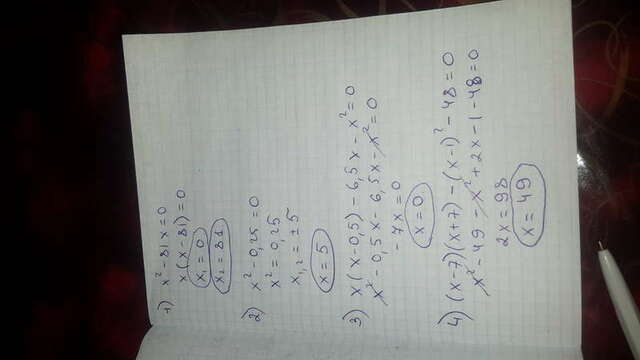 1) x² - 81x = 0
x(x - 81) = 0
x₁ = 0
x₂ = 81
2) x² - 0,25 = 0
x² = 0,25
x₁,₂ = ±5
x = 5
3) x(x - 0,5) - 6,5x - x² = 0
x² - 0,5x - 6,5x - x² = 0
-7x = 0
x = 0
4) (x - 7)(x + 7) - (x - 1)² - 48 = 0
x² - 49 - x² + 2x - 1 - 48 = 0
2x = 98
x = 49